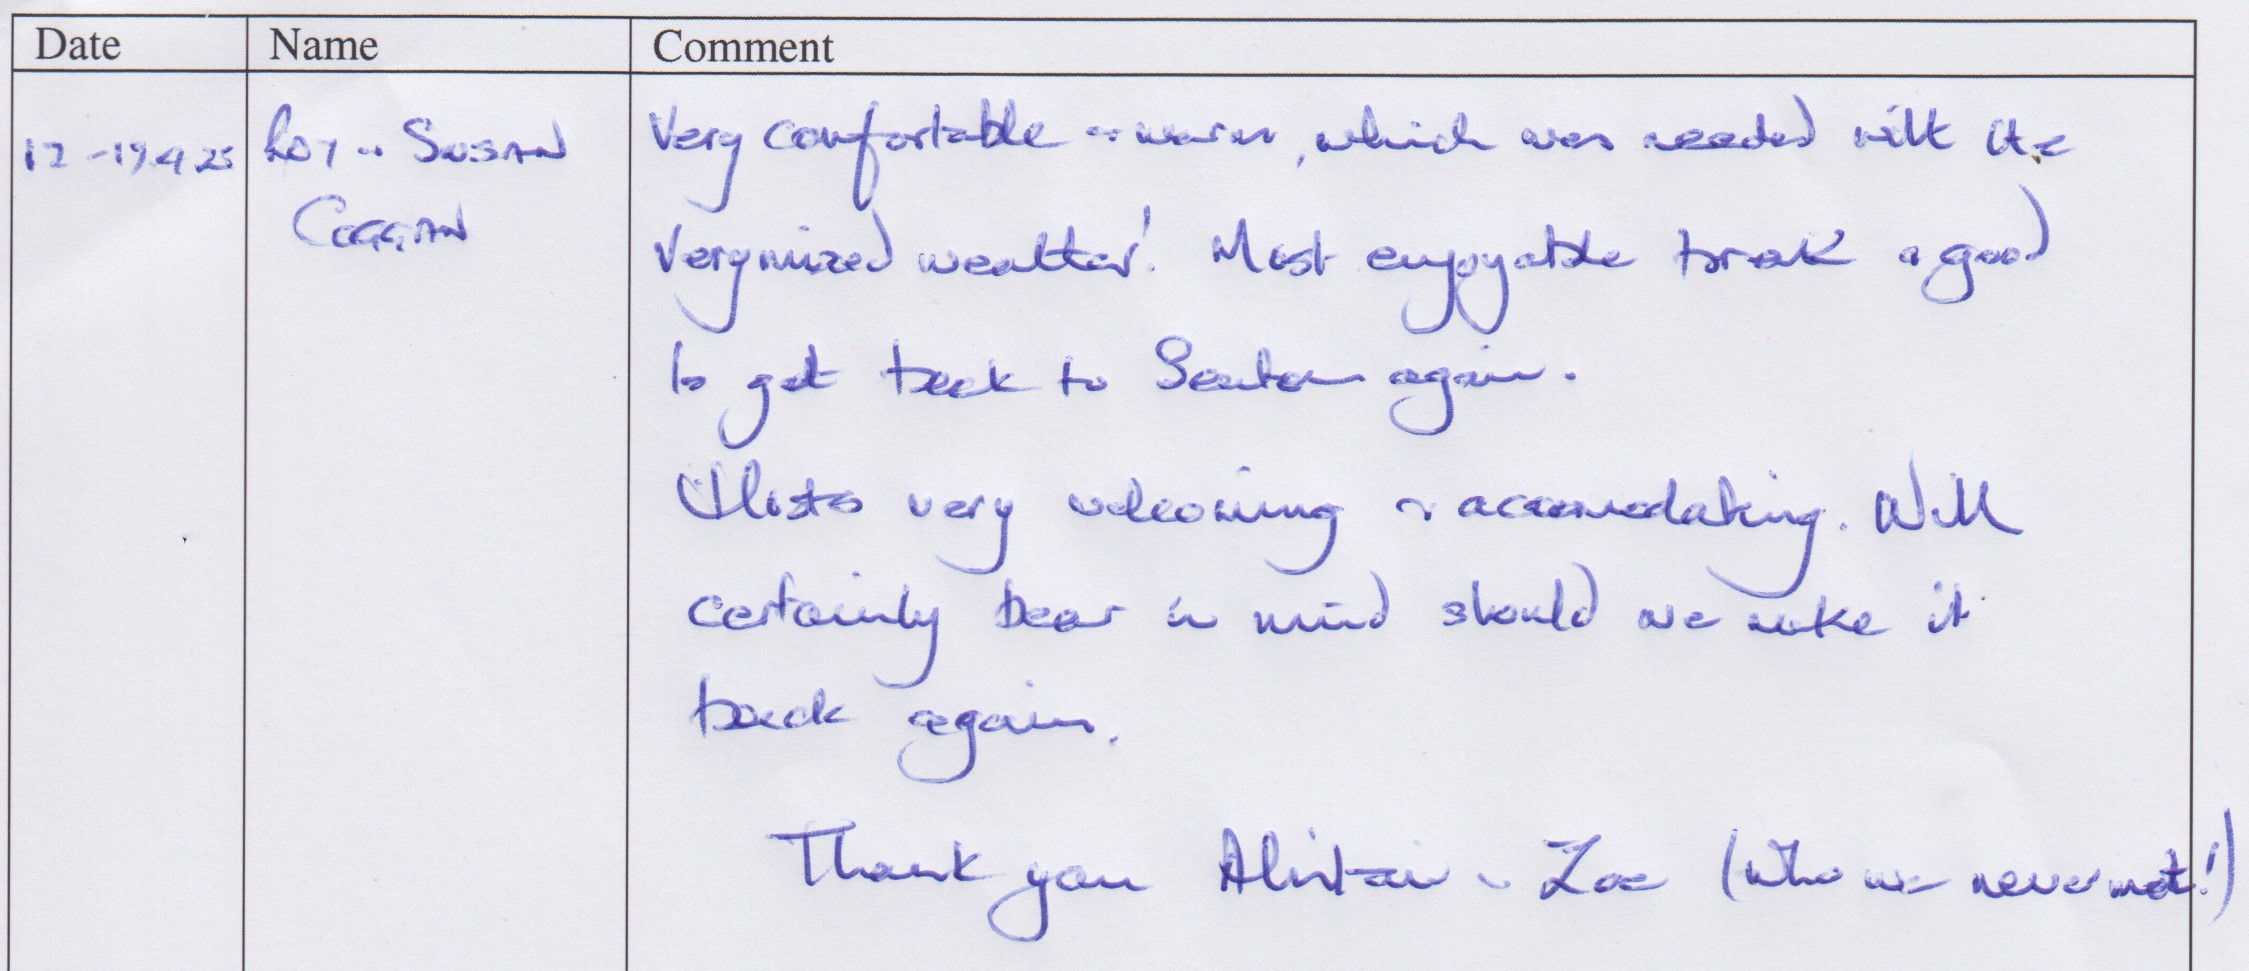 Date Name Comment
12-19.4.25 Roy & Susan Very comfortable & warm, which was needed with the
Coggan very mixed weather! Most enjoyable break & good
to get back to Seaton again.
Hosts very welcoming & accomodating. Will
certainly bear in mind should we make it
back again.
Thank you Alistair & Zoe (who we never met!)